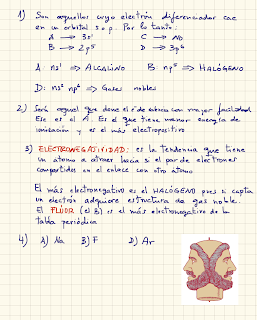 1) Son aquellos cuyo electrón diferenciador cae
en un orbital s o p. Por lo tanto:
A → 3s¹ C → No
B → 2p⁵ D → 3p⁶
A: ns¹ ⇒ ALCALINO B: np⁵ ⇒ HALÓGENO
D: ns² np⁶ ⇒ Gases nobles
2) Será aquel que done el é de valencia con mayor facilidad.
Ese es el A. Es el que tiene menor energía de
ionización y es el más electropositivo
3) ELECTRONEGATIVIDAD: es la tendencia que tiene
un átomo a atraer hacia sí el par de electrones
compartidos en el enlace con otro átomo
El más electronegativo es el HALÓGENO pues si capta
un electrón adquiere estructura de gas noble.
El FLÚOR (el B) es el más electronegativo de la
tabla periódica
4) A) Na B) F D) Ar